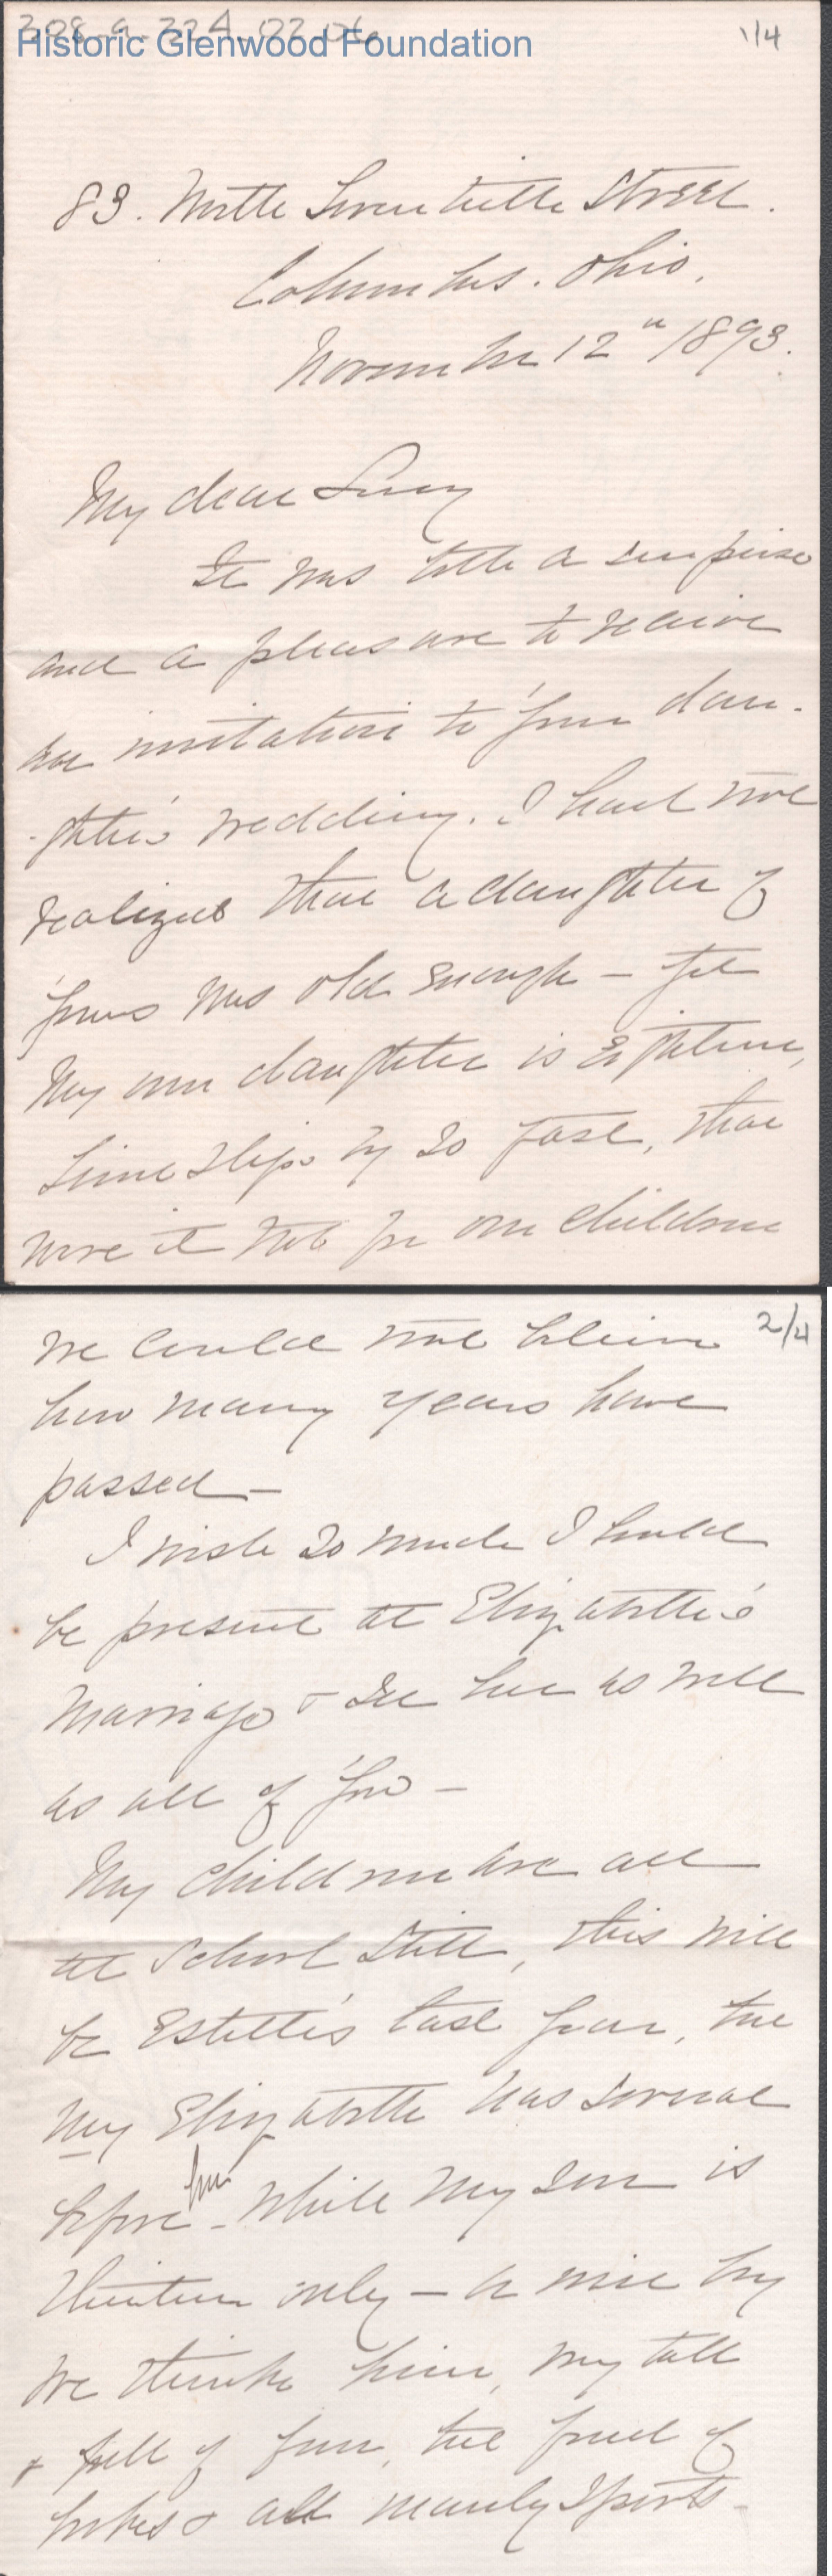 308-9-324.02.06
Historic Glenwood Foundation
1/4
83. North Seventeenth Street.
Columbus. Ohio.
November 12" 1893.
My dear Lucy
It was both a surprise
and a pleasure to receive
an invitation to your dau-
-ghter's wedding. I had not
realized that a daughter of
yours was old enough - yet
My own daughter is eighteen,
time slips by so fast, that
were it not for our children
2/4
we could not believe
how many years have
passed -
I wish so much I could
be present at Elizabeth's
marriage & see her as well
as all of you -
My children are all
at school still, this will
be Estelle's last year, but
my Elizabeth has several
before her - While my son is
thirteen only - a nice boy
we think him, very tall
& full of fun, but fond of
books & all manly sports -